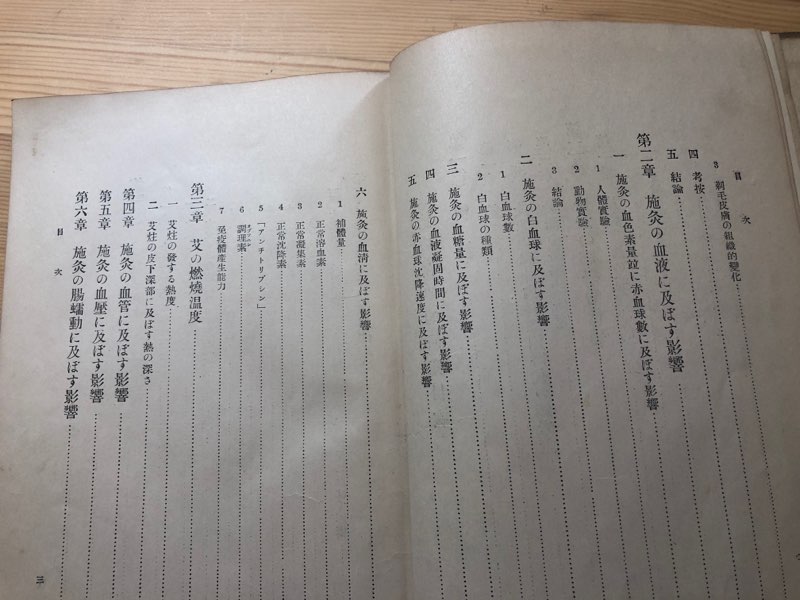 目次
3 剃毛皮膚の組織的變化
四 考按
五 結論
第二章 施灸の血液に及ぼす影響
一 施灸の血色素量竝に赤血球數に及ぼす影響
1 人體實驗
2 動物實驗
3 結論
二 施灸の白血球に及ぼす影響
1 白血球數
2 白血球の種類
三 施灸の血糖量に及ぼす影響
四 施灸の血液凝固時間に及ぼす影響
五 施灸の赤血球沈降速度に及ぼす影響
六 施灸の血淸に及ぼす影響
1 補體量
2 正常溶血素
3 正常凝集素
4 正常沈降素
5 「アンチトリプシン」
6 調理素
7 免疫體產生能力
第三章 艾の燃燒溫度
一 艾炷の發する熱度
二 艾炷の皮下深部に及ぼす熱の深さ
第四章 施灸の血管に及ぼす影響
第五章 施灸の血壓に及ぼす影響
第六章 施灸の腸蠕動に及ぼす影響
目次
三